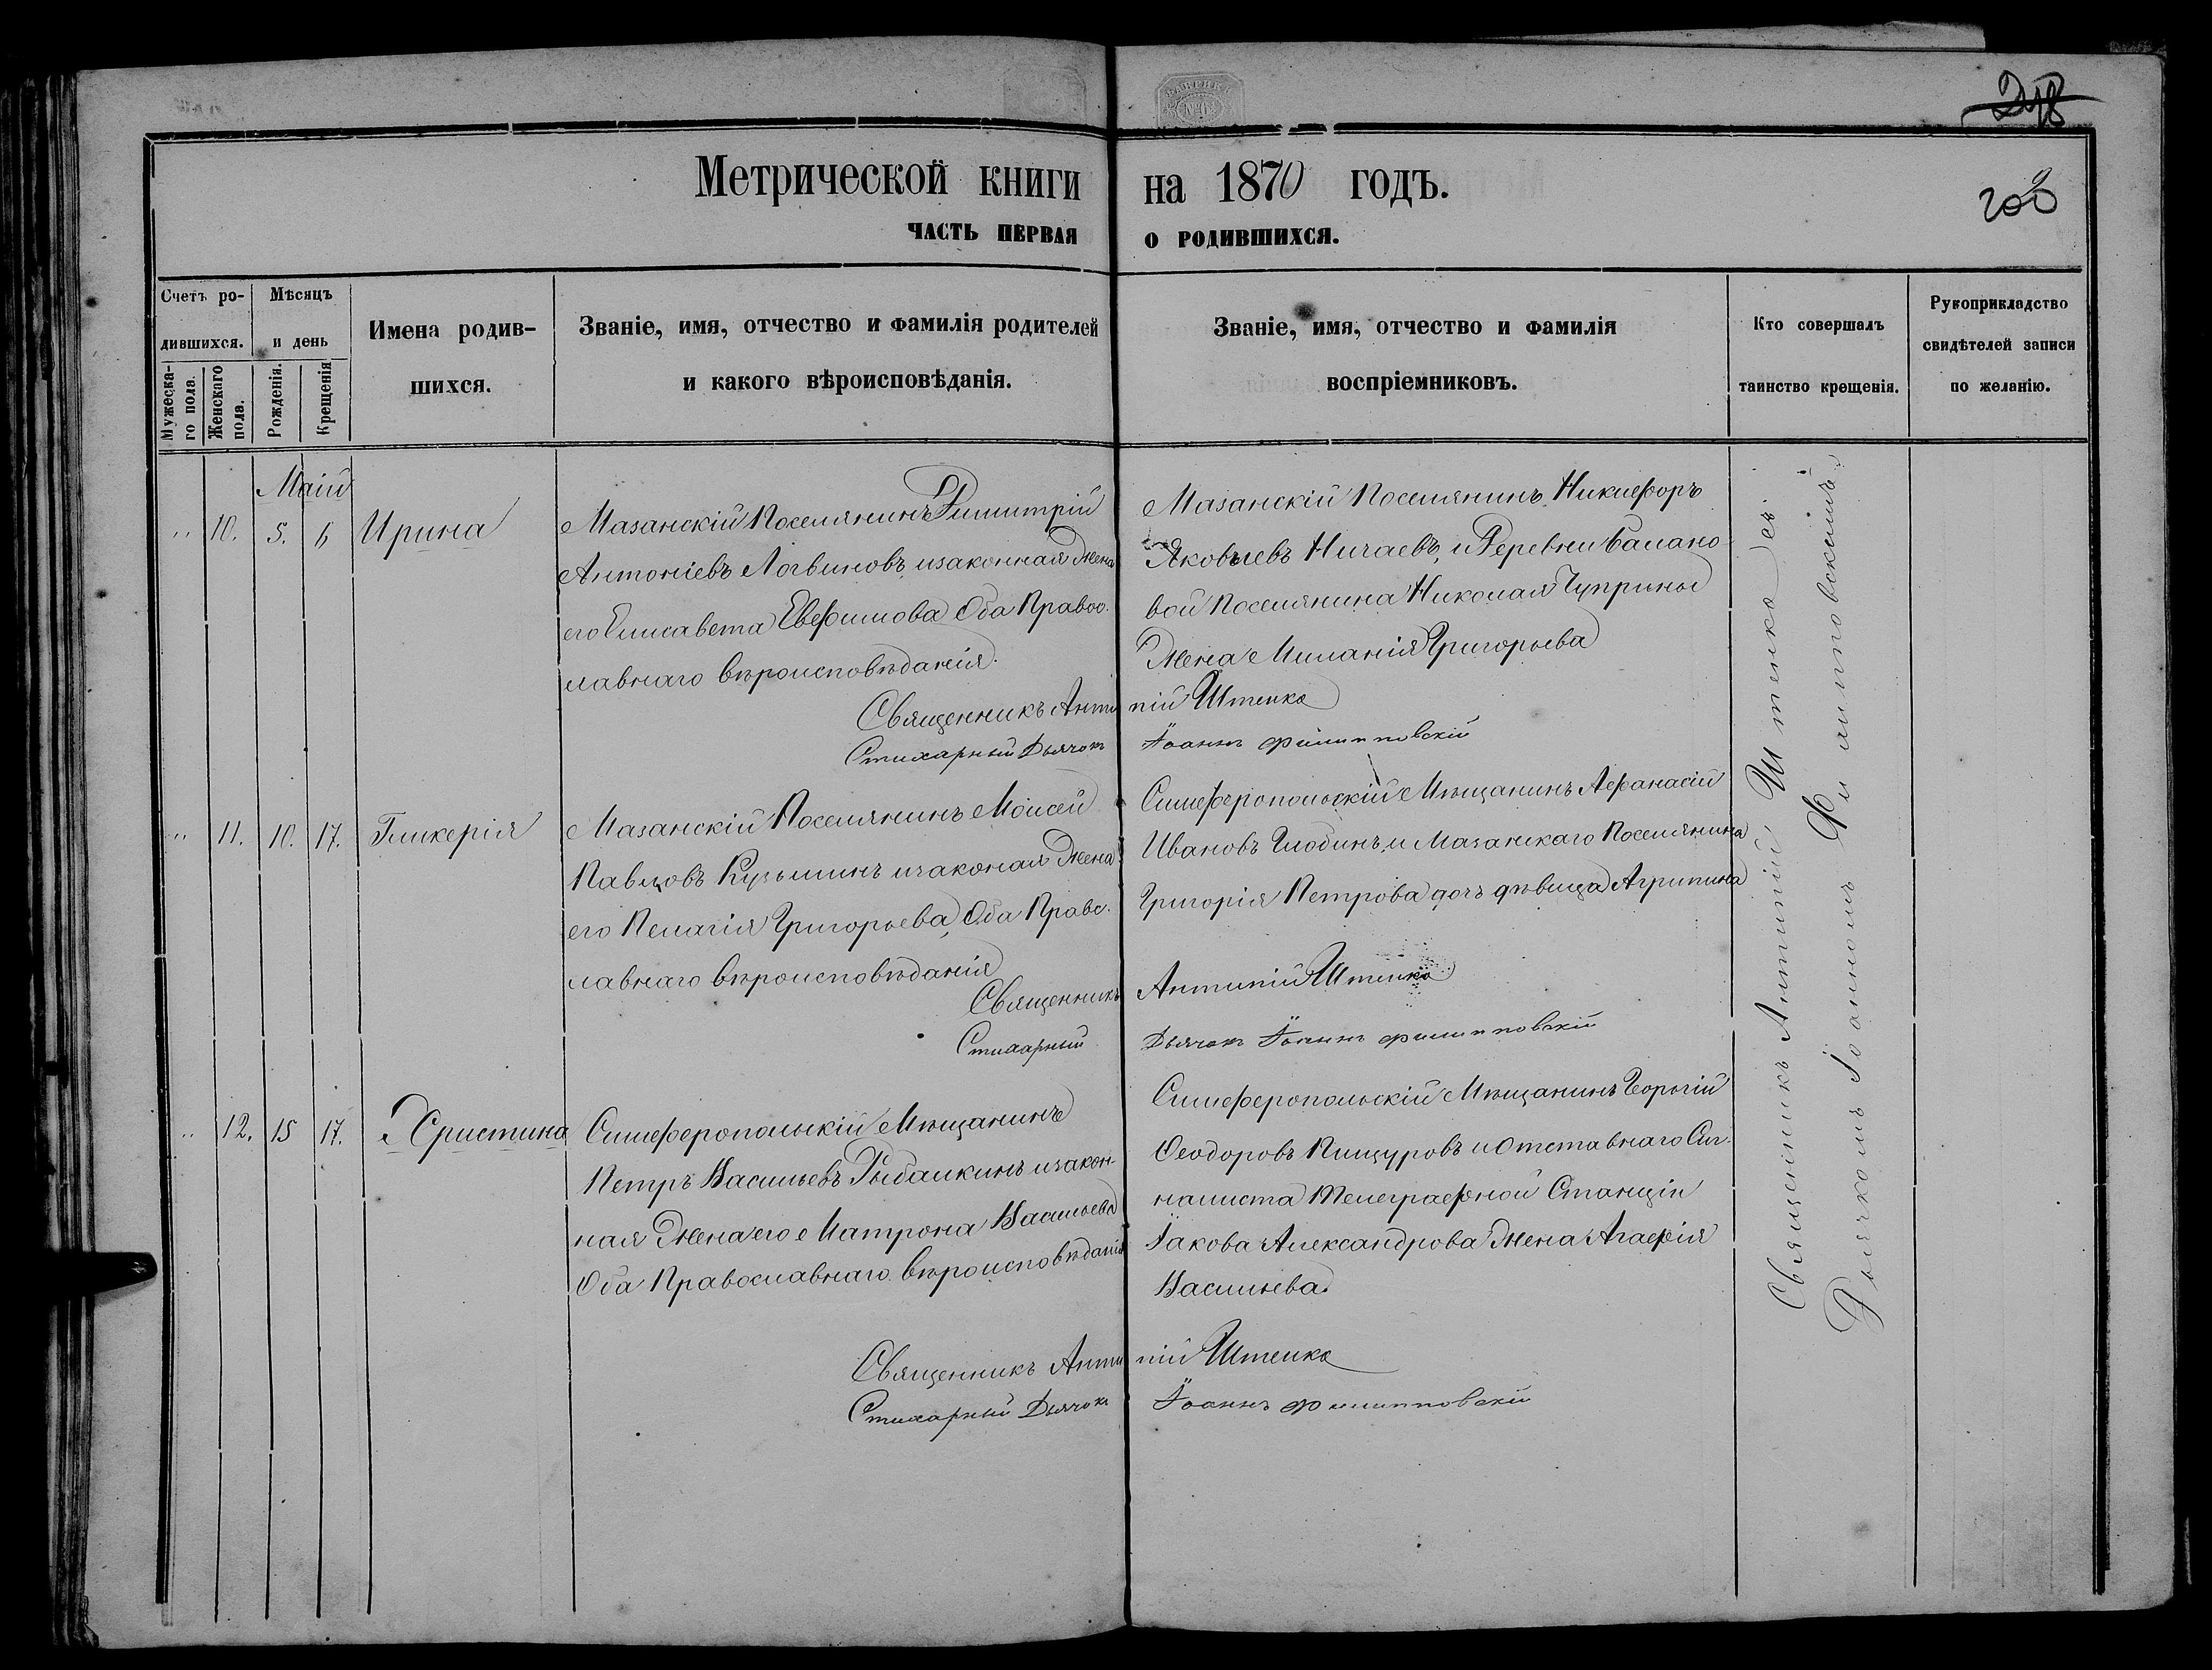 Метрической книги на 1870 годъ.
ЧАСТЬ ПЕРВАЯ О РОДИВШИХСЯ.
Счетъ ро-
дившихся.
Мужеска-
го пола.
Женскаго
пола.
Мѣсяцъ
и день
Рожденія.
Крещенія
Имена родив-
шихся.
Званіе, имя, отчество и фамилія родителей
и какого вѣроисповѣданія.
Званіе, имя, отчество и фамилія
воспріемниковъ.
Кто совершалъ
таинство крещенія.
Рукоприкладство
свидѣтелей записи
по желанію.
Маій
" 10. 5. 6 Ирина
Мазанскій Поселянинъ Димитрій
Антоніевъ Логвиновъ, и законная Жена
его Елисавета Евѳимова Оба Правос-
лавнаго вѣроисповѣданія.
Мазанскій Поселянинъ, Никифоръ
Яковлевъ Ничаевъ, и Деревни Балано-
вой Поселянина Николая Чуприны
Жена Миланія Григорьева
Священникъ Антипій Штенко
Стихарный Дьячокъ Іоаннъ Филипповскій
" 11. 10. 17. Гликерія
Мазанскій Поселянинъ Моисей
Павловъ Кузьминъ и законая Жена
его Пелагія Григорьева, Оба Правс-
лавнаго вѣроисповѣданія
Симферопольскій Мѣщанинъ Афанасій
Ивановъ Глобинъ, и Мазанкаго Поселянина
Григорія Петрова дочь дѣвица Агрипина
Священникъ Антипій Штенко
Стихарный Дьячокъ Іоаннъ Филипповскій
" 12. 15 17. Христина
Симферополькій Мѣщанинъ
Петръ Васильевъ Рыбалкинъ и закон-
ная Жена его Матрона Васильева
Оба Православнаго вѣроисповѣданія
Симферопольскій Мѣщанинъ Георгій
Ѳеодоровъ Пищуровъ и Отставнаго Сиг-
налиста Телеграфной Станціи
Іакова Александрова Жена Агафія
Васильева
Священникъ Антипій Штенко
Стихарный Дьячокъ Іоаннъ Филипповскій
Священникъ Антипій Штенко съ
Дьячкомъ Іоанномъ Филипповскимъ